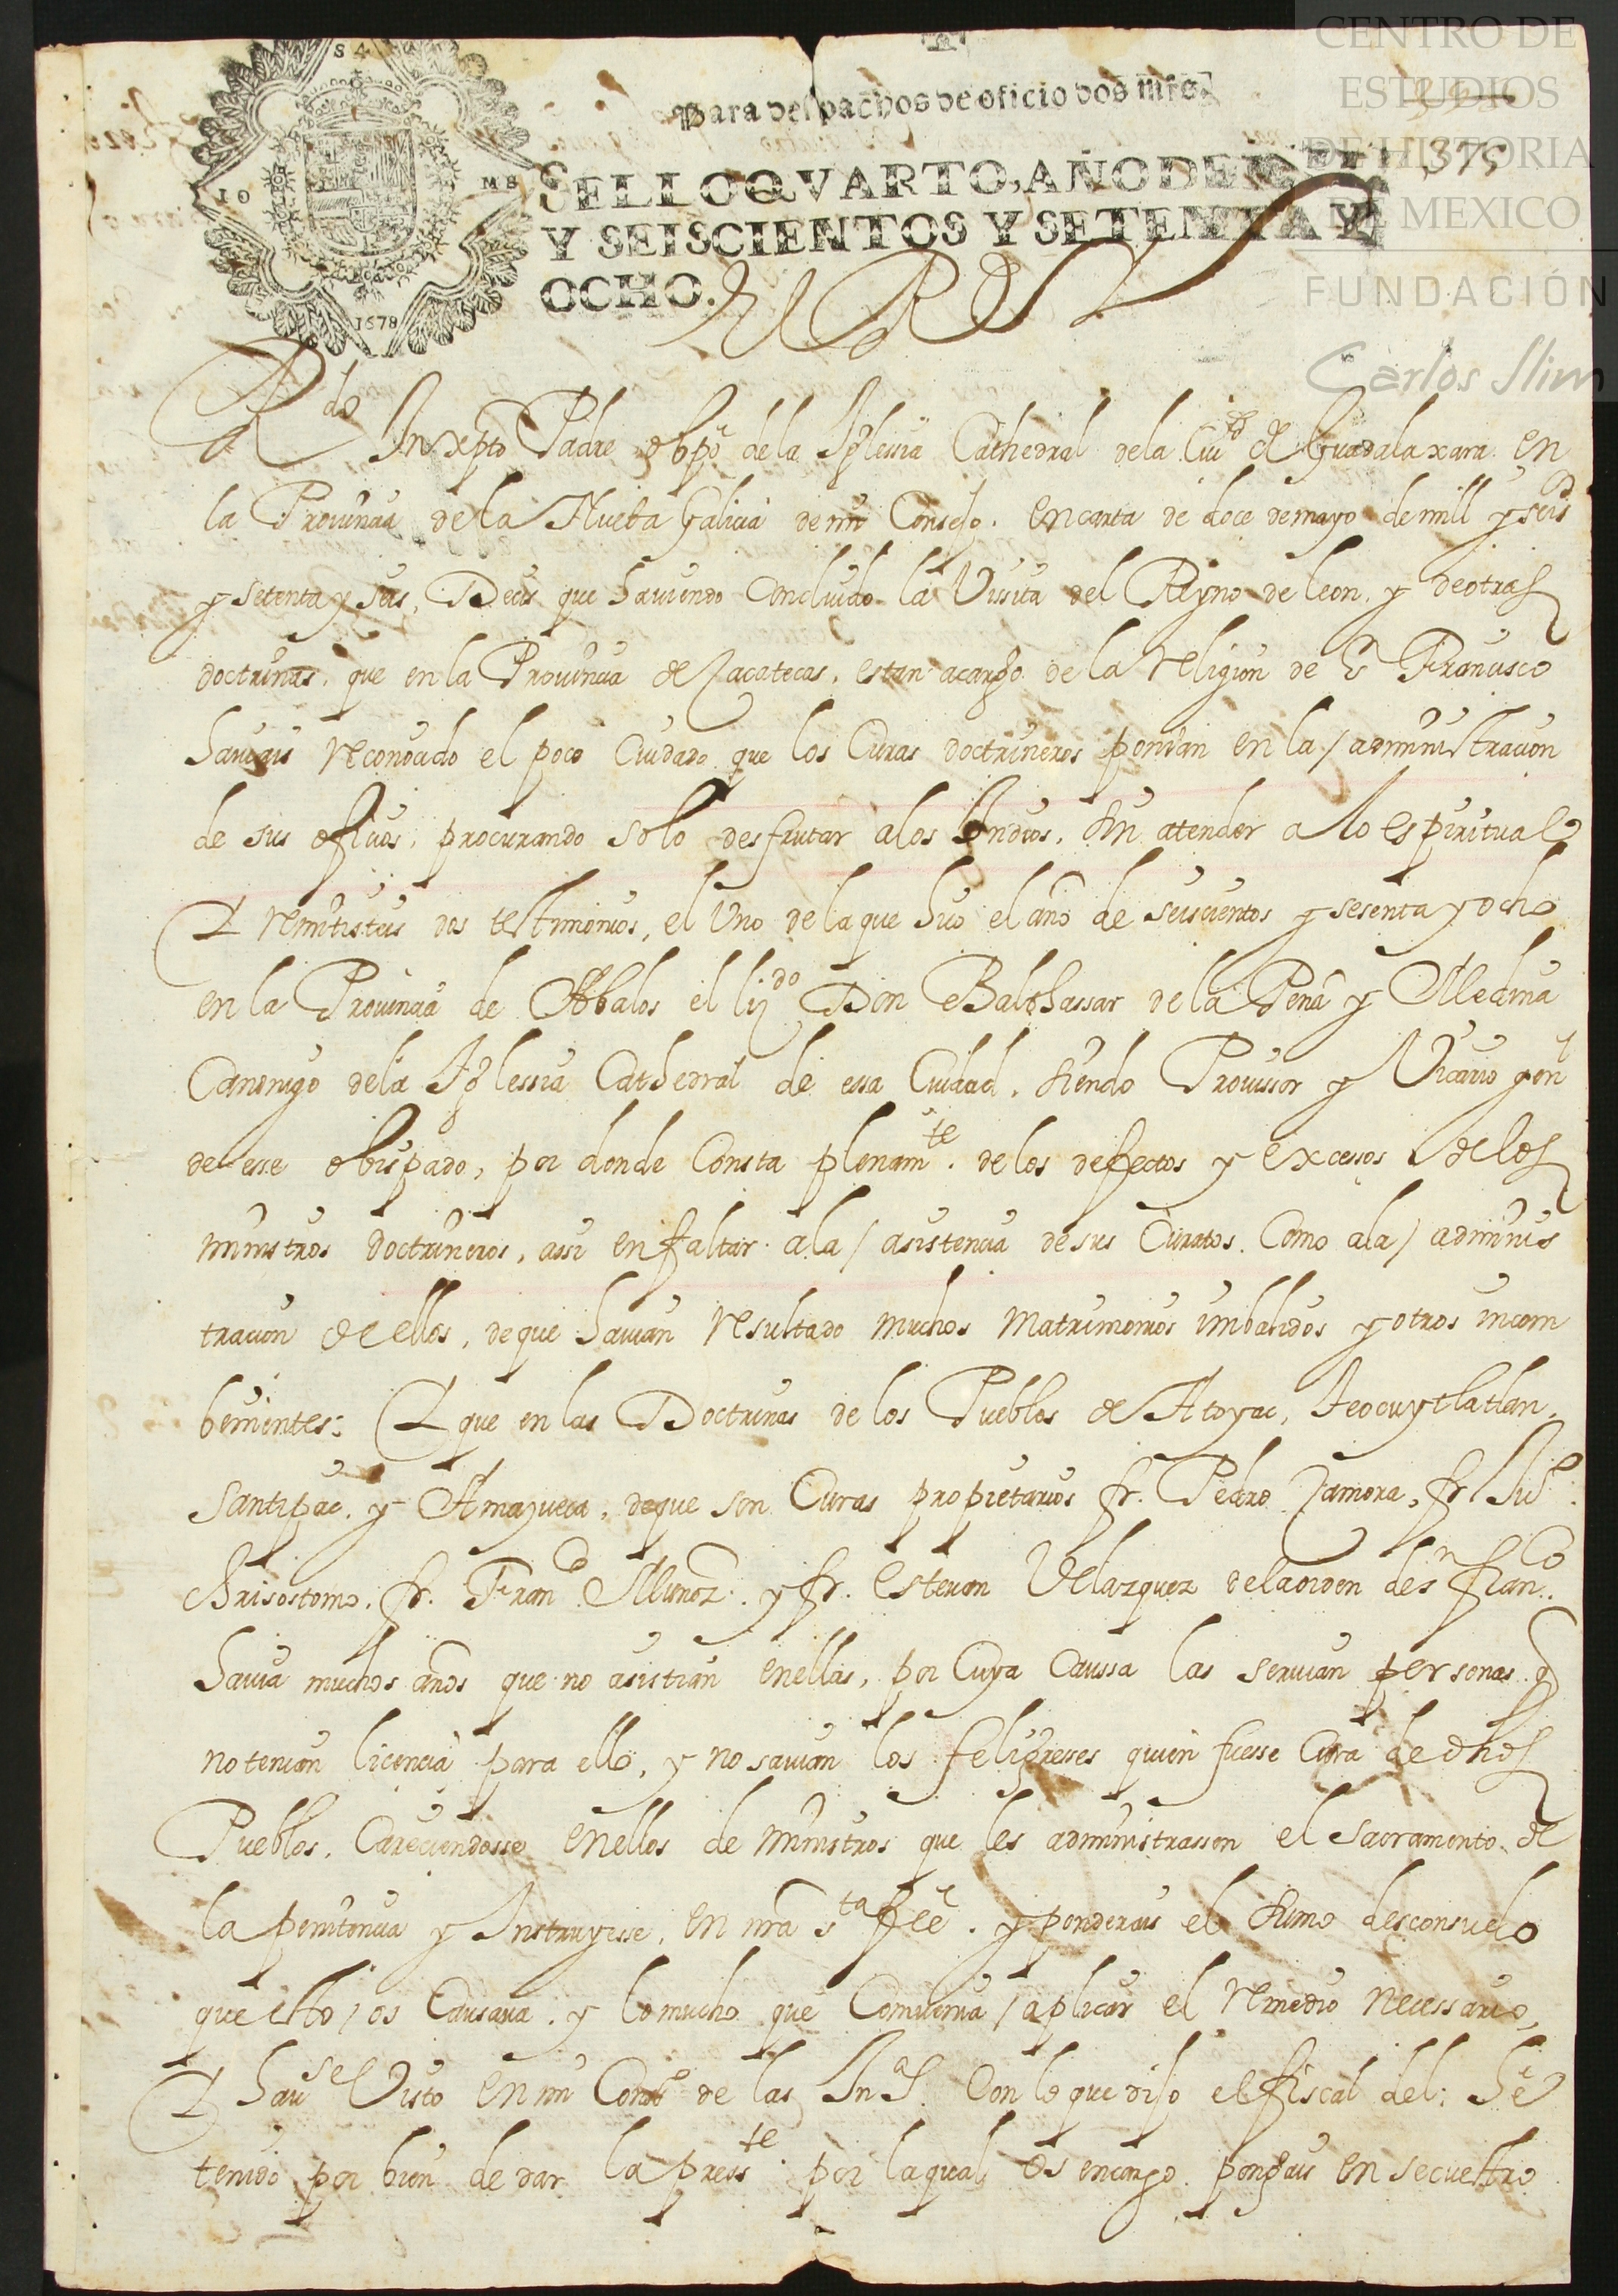 CENTRO DE
ESTUDIOS
DE HISTORIA
DE MEXICO
FUNDACIÓN
Carlos Slim
S 4
Para despachos de oficio dos mrs.
375
IO MS
SELLO QVARTO, AÑO DE MIL
Y SEISCIENTOS Y SETENTA Y
OCHO.
1678
El Rey
Rdo Inxpto Padre obpo de la Iglessia Cathedral de la Ciud de Guadalaxara en
la Prouincia de la Nueba Galicia de mi Consejo. en carta de doce de mayo de mill y seisos
y setenta y seis, Decis que hauiendo Concluido la Visita del Reyno de leon, y de otras
doctrinas, que en la Prouincia de Zacatecas, estan a cargo de la religion de Sn Francisco
hauiais reconocido el poco Cuidado que los Curas doctrineros ponian en la administracion
de sus oficios, procurando solo desfrutar a los Indios, sin atender a lo espiritual
Y remitisteis dos testimonios, el Uno de la que hiço el año de seiscientos y sesenta y ocho
en la Prouincia de Abalos el lizdo Don Balthassar de la Peña y Medina
Canonigo de la Iglessia Cathedral de essa Ciudad, siendo Prouissor y Vicario genl
de esse obispado, por donde Consta plenamte. de los defectos y excessos de los
ministros doctrineros, assi en faltar a la asistencia de sus Curatos, Como a la adminis
tracion de ellos, de que hauian resultado muchos matrimonios imbalidos y otros incom
benientes: Y que en las Doctrinas de los Pueblos de Atoyac, Teocuytlatlan,
Santipac, y Amayueca, de que son Curas propietarios fr. Pedro Zamora, fr. Juo
Chrisostomo, fr. Franco Munoz. y fr. esteuan Velazquez de la orden de sn franco.
hauia muchos años que no asistian en ellas, por Cuya Caussa las seruian personas q
no tenian licencia para ello, y no sauian los feligresses quien fuesse Cura de dhos
Pueblos, Careciendosse en ellos de ministros que les administrassen el sacramento de
la penitencia y Instruyesse, en nra sta feê. y ponderais el sumo desconsuelo
que esto os Causaua, y lo mucho que Conuenia aplicar el remedio necessario,
Y hause Visto en mi Conso de las Inas. Con lo que dijo el fiscal del: he
tenido por bien de dar la presste. por la qual os encargo pongais en secuestro